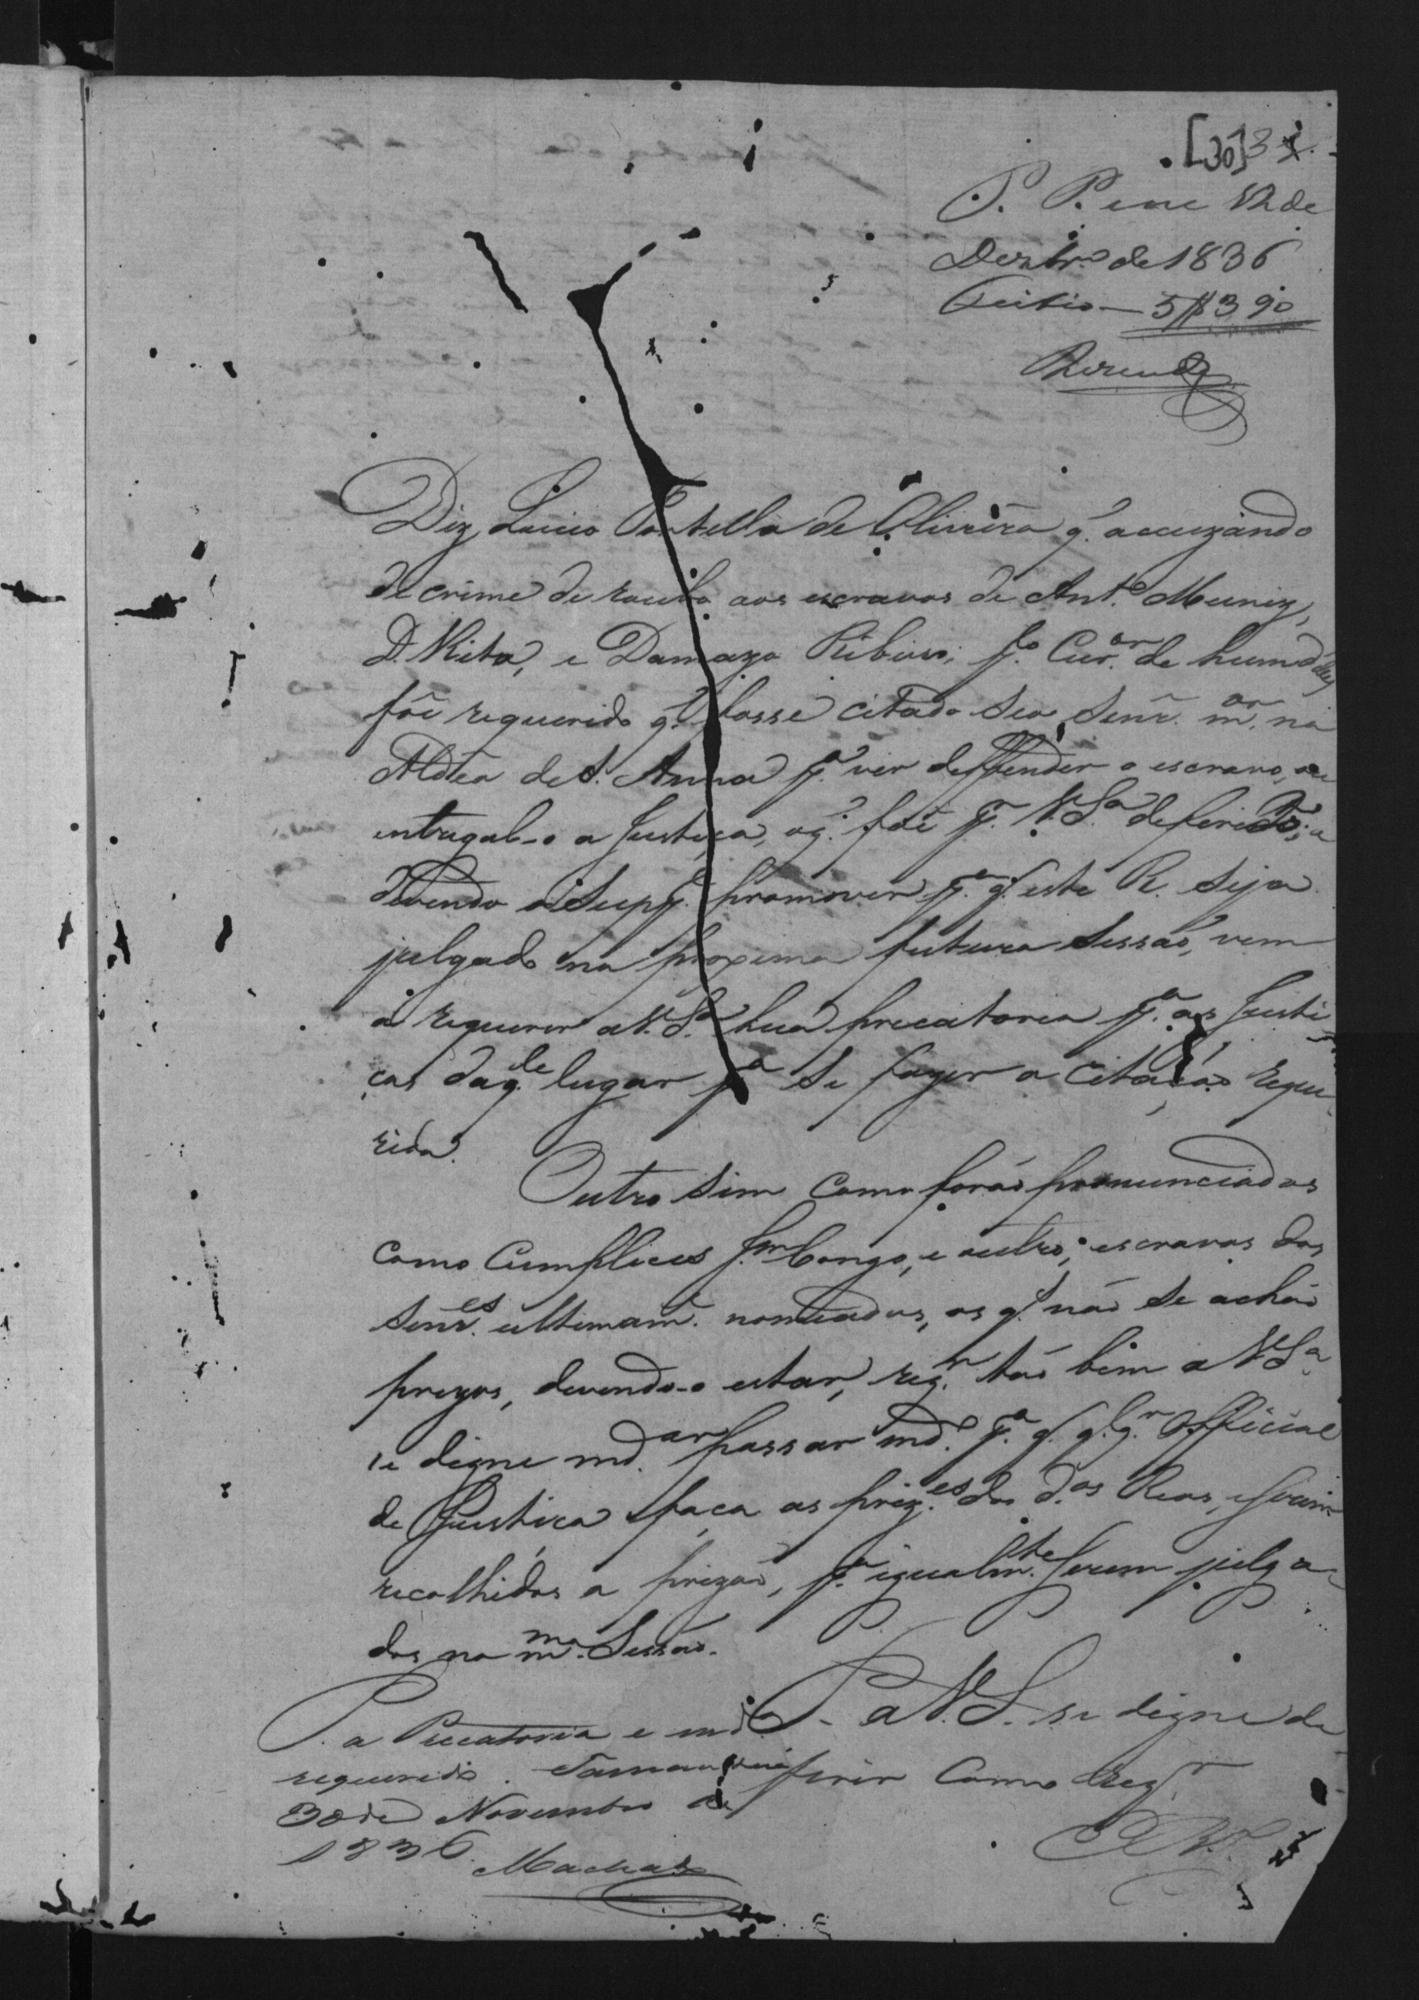 [30] 3
P. P. em 12 de
Dezbrº de 1836
Feitio — 5$390
Rezende
Diz Lucio Portella de Oliveira q. accuzando
de crime de roubo aos escravos de Antº Muniz,
D. Rita, e Damazo Ribeiro, pº Curor de
foi requerido q. fosse citado seo Senr. mor. na
Aldea de S. Anna pª ver deffender o escravo, ou
entregal-o a Justiça, oq. foi pr. V. Sª deferido; e
devendo o Supe. promover pª q. este R. seja
julgado na proxima futura Sessaõ, vem
a requerer a V. Sª hua precatoria pª as Justi
ças daqle. lugar pª se fazer a citaçaõ reque
rida.
Outro sim como foraõ pronunciados
como Cumplices Jm. Congo, e outro, escravos dos
Senres. ultimamte. nomeados, os q. naõ se achaõ
prezos, devendo-o estar, reqr. taõ bem a V. Sª
se digne mdar. passar mdº. pª q. qlqr. Official
de Justiça faça as prizes. dos dos. Reos, e sejam
recolhidos a prizaõ, pª igualmte. serem julga-
dos na mma. Sessaõ.
P. a V. S. se digne de
ferir como reqr.
E R. Mce.
P. a Precatoria e mdº
requerido.
30 de Novembro de
1836. Machado